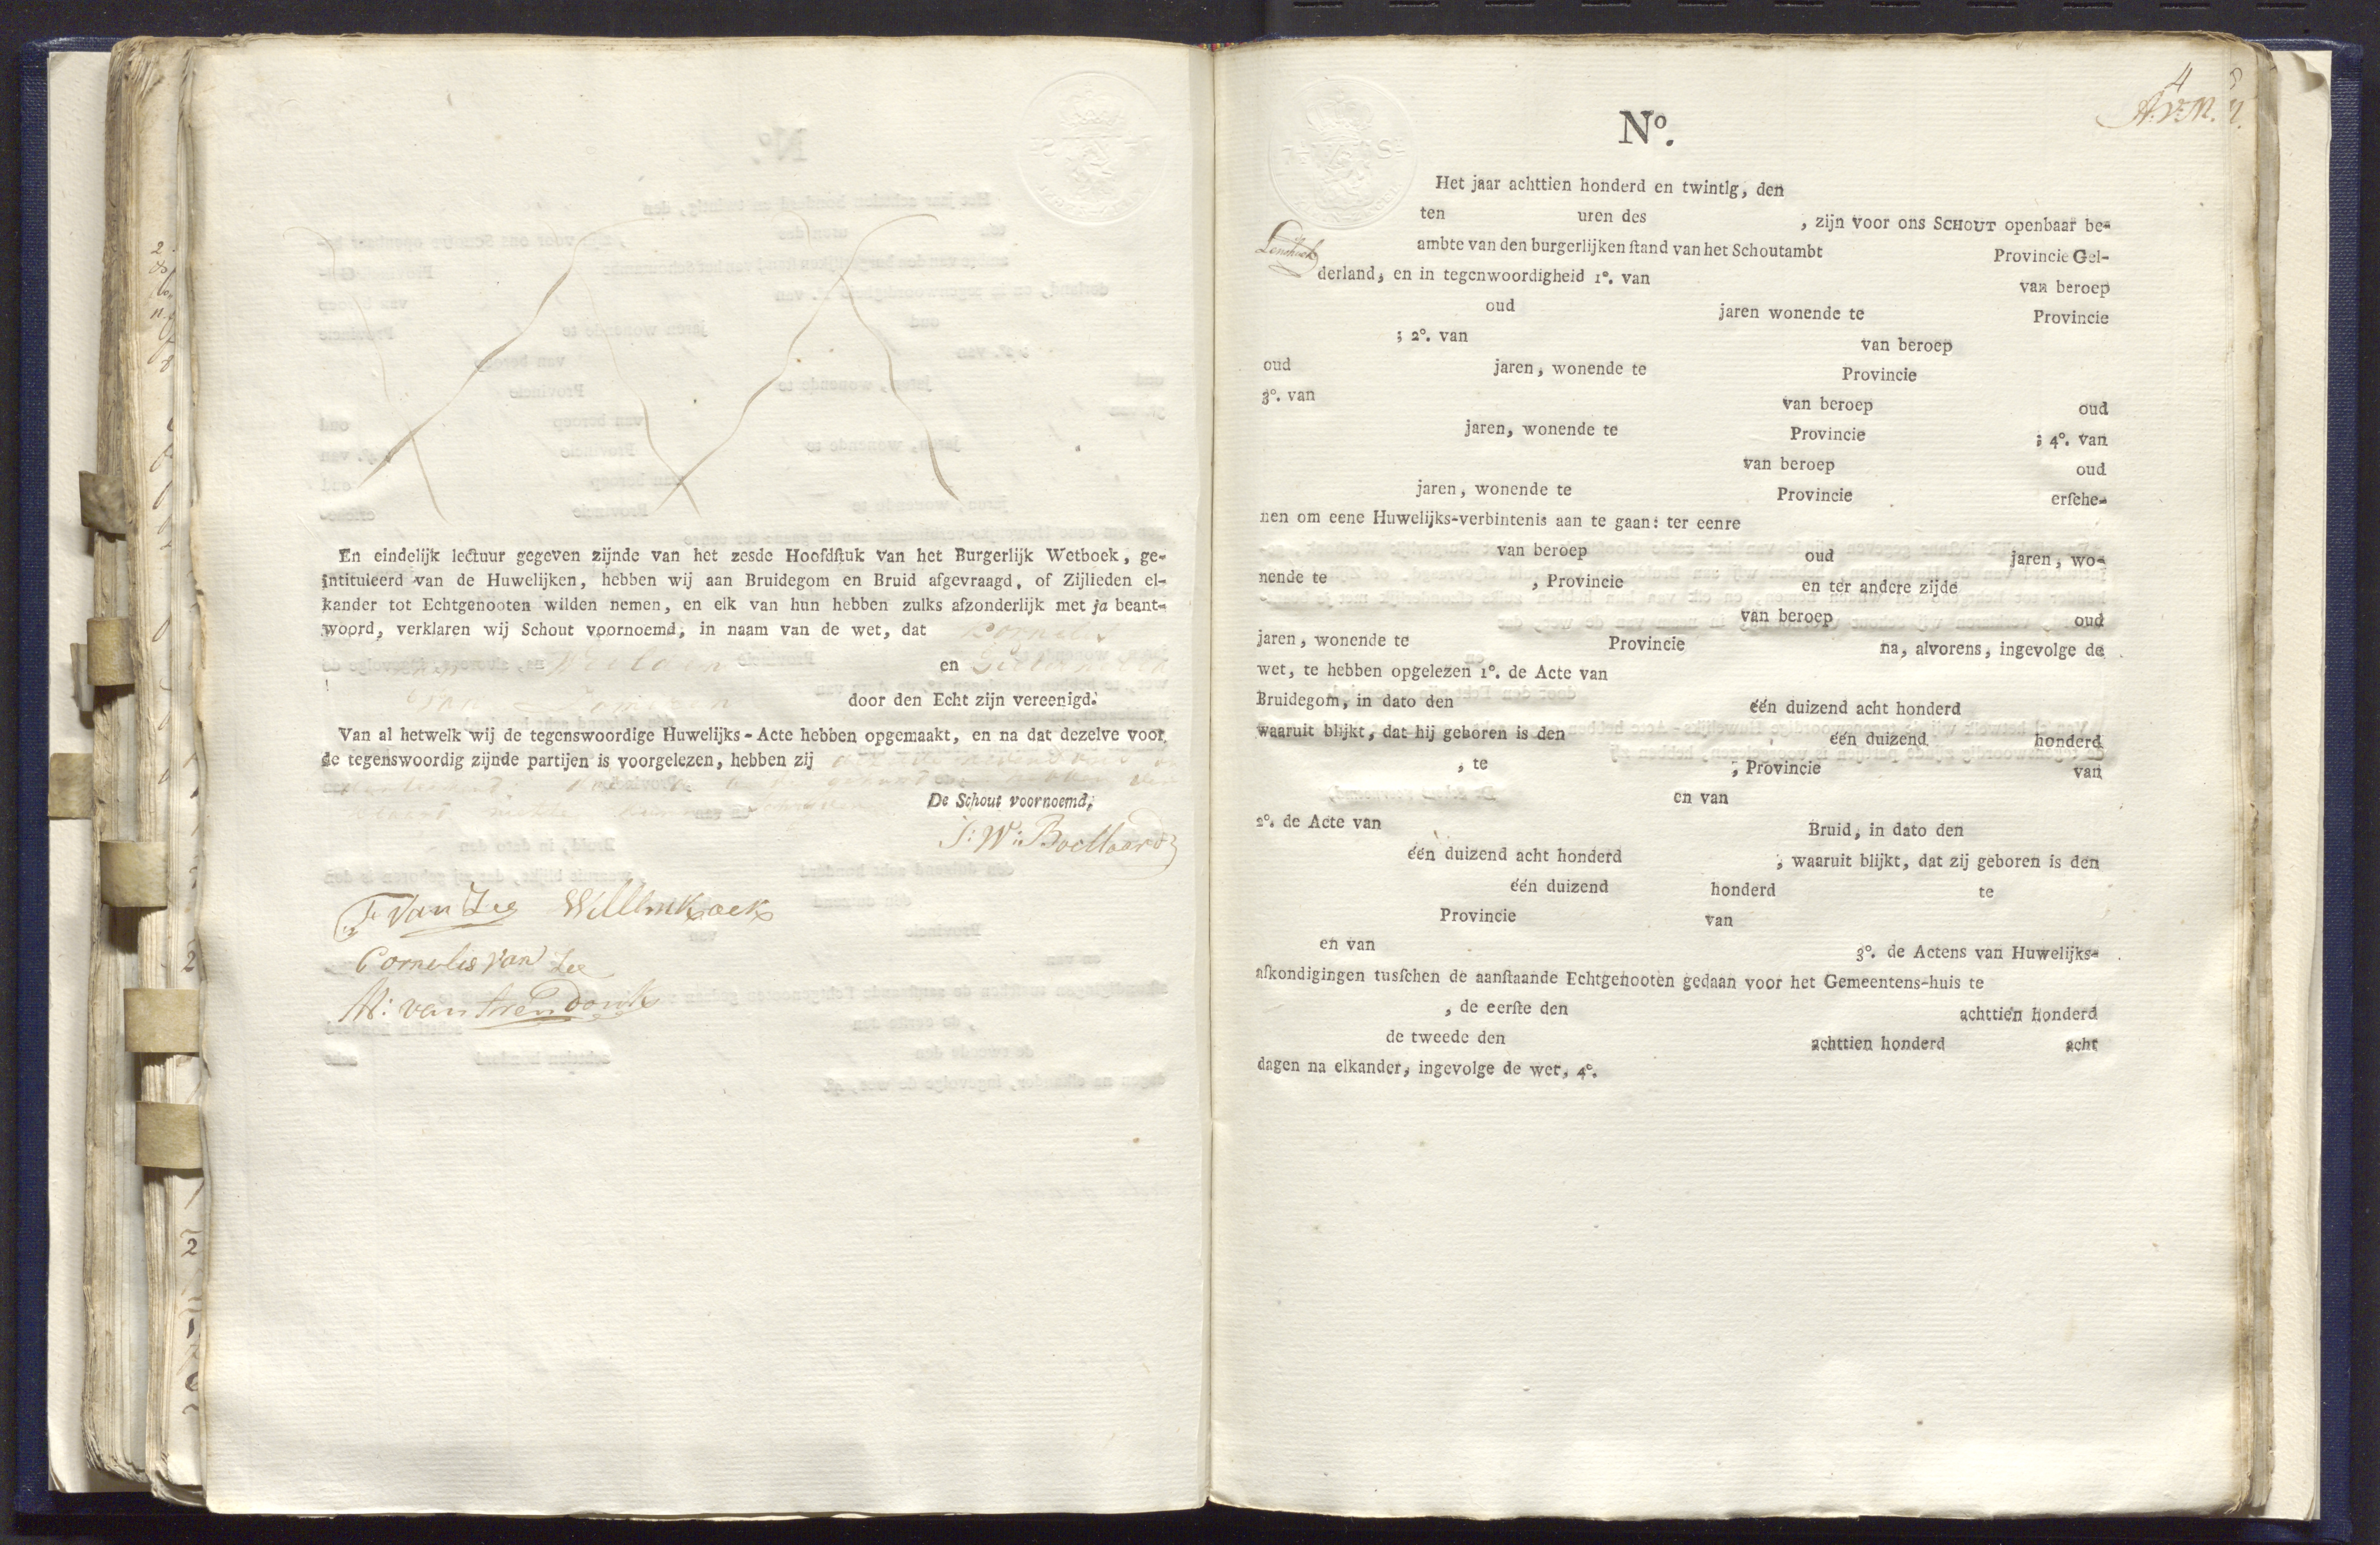 En eindelijk lectuur gegeven zijnde van het zesde Hoofdſtuk van het Burgerlijk Wetboek, ge-
intituleerd van de Huwelijken, hebben wij aan Bruidegom en Bruid afgevraagd, of Zijlieden el-
kander tot Echtgenooten wilden nemen, en elk van hun hebben zulks afzonderlijk met ja beant-
woord, verklaren wij Schout voornoemd, in naam van de wet, dat Cornelis
en
van
door den Echt zijn vereenigd.
Van al hetwelk wij de tegenswoordige Huwelijks-Acte hebben opgemaakt, en na dat dezelve voor
de tegenswoordig zijnde partijen is voorgelezen, hebben zij
De Schout voornoemd,
J: W: Boellaard
T. van Zee Willmkoek
Cornelis van Zee
M: van
4
A.v.M.
No.
Het jaar achttien honderd en twintig, den
ten uren des , zijn voor ons SCHOUT openbaar be-
ambte van den burgerlijken ſtand van het Schoutambt Provincie Gel-
derland, en in tegenwoordigheid 1o. van van beroep
oud jaren wonende te Provincie
; 2o. van van beroep
oud jaren, wonende te Provincie
3o. van van beroep oud
jaren, wonende te Provincie ; 4o. van
van beroep oud
jaren, wonende te Provincie erſche-
nen om eene Huwelijks-verbintenis aan te gaan: ter eenre
van beroep oud jaren, wo-
nende te , Provincie en ter andere zijde
van beroep oud
jaren, wonende te Provincie na, alvorens, ingevolge de
wet, te hebben opgelezen 1o. de Acte van
Bruidegom, in dato den één duizend acht honderd
waaruit blijkt, dat hij geboren is den één duizend honderd
, te , Provincie van
en van
2o. de Acte van Bruid, in dato den
één duizend acht honderd , waaruit blijkt, dat zij geboren is den
één duizend honderd te
Provincie van
en van 3o. de Actens van Huwelijks-
afkondigingen tusſchen de aanſtaande Echtgenooten gedaan voor het Gemeentens-huis te
, de eerſte den achttien honderd
de tweede den achttien honderd acht
dagen na elkander, ingevolge de wet, 4o.